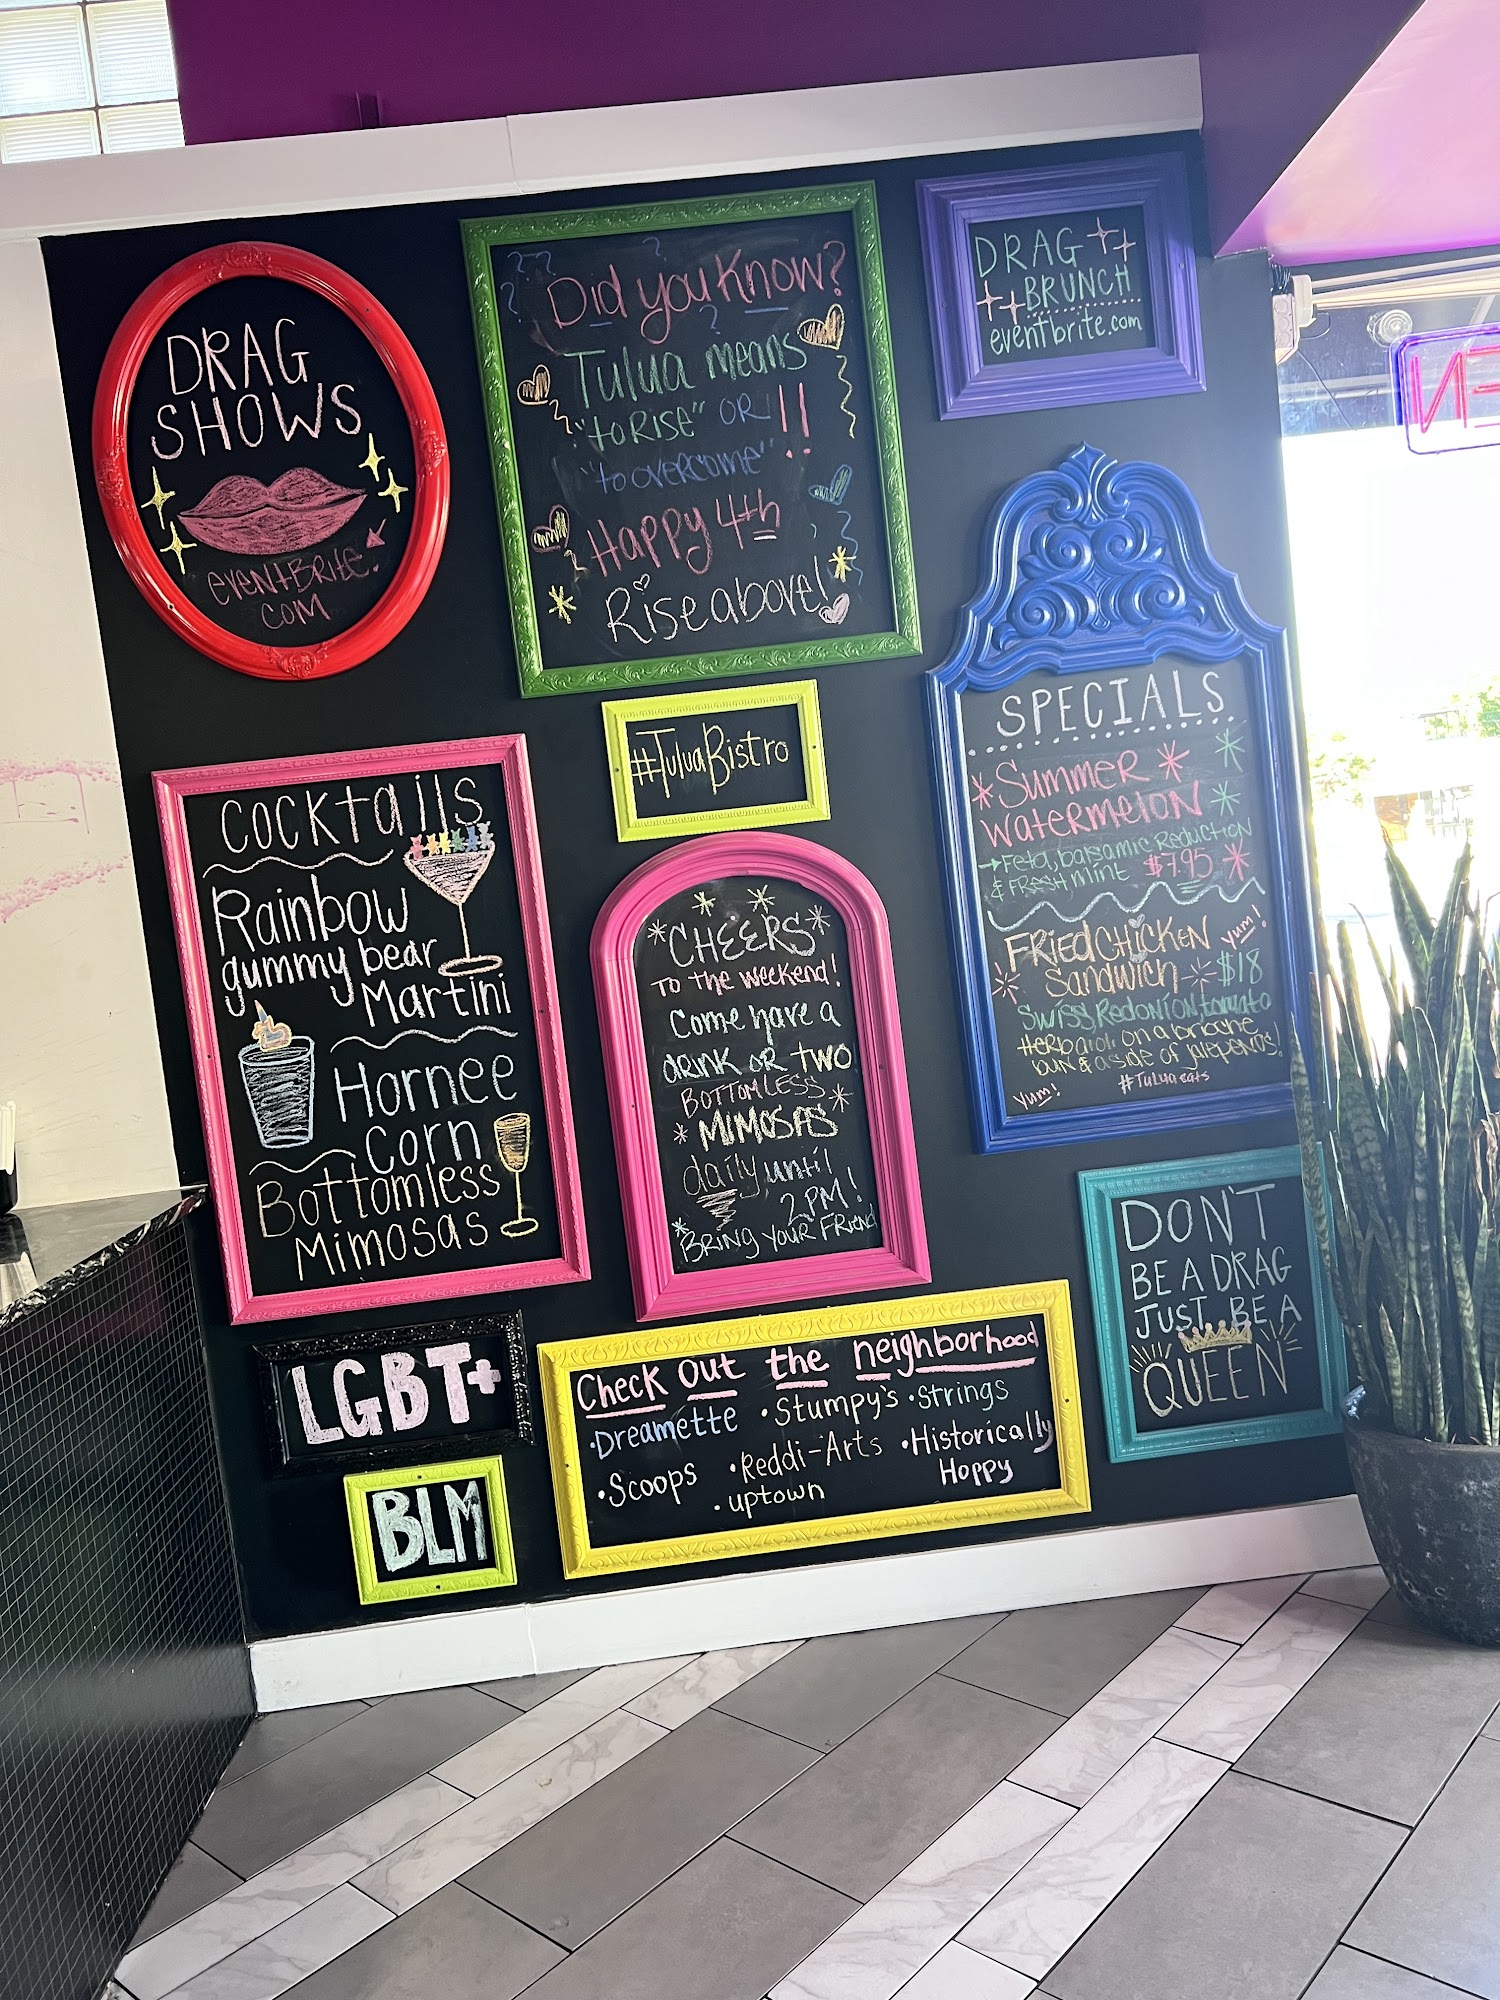 DRAG
SHOWS
eventBrite.
com
Did you Know?
Tulua means
"to Rise" OR !!
"to overcome"
Happy 4th
Rise above!
DRAG
BRUNCH
eventbrite.com
#TuluaBistro
SPECIALS
Summer
Watermelon
Feta, balsamic Reduction
& Fresh mint $7.95
Fried Chicken
Sandwich
Yum!
$18
Swiss, Red onion, tomato
Herb aioli on a brioche
bun & a side of jalepenos!
Yum!
#Tulua eats
Cocktails
Rainbow
gummy bear
Martini
Hornee
Corn
Bottomless
Mimosas
CHEERS
To the weekend!
Come have a
drink or TWO
BOTTOMLESS
MIMOSAS
daily, until
2PM!
Bring your Friend
DON'T
BE A DRAG
JUST BE A
QUEEN
LGBT+
BLM
Check out the neighborhood
•Dreamette •Stumpy's •Strings
•Scoops •Reddi-Arts •Historically
Hoppy
•uptown